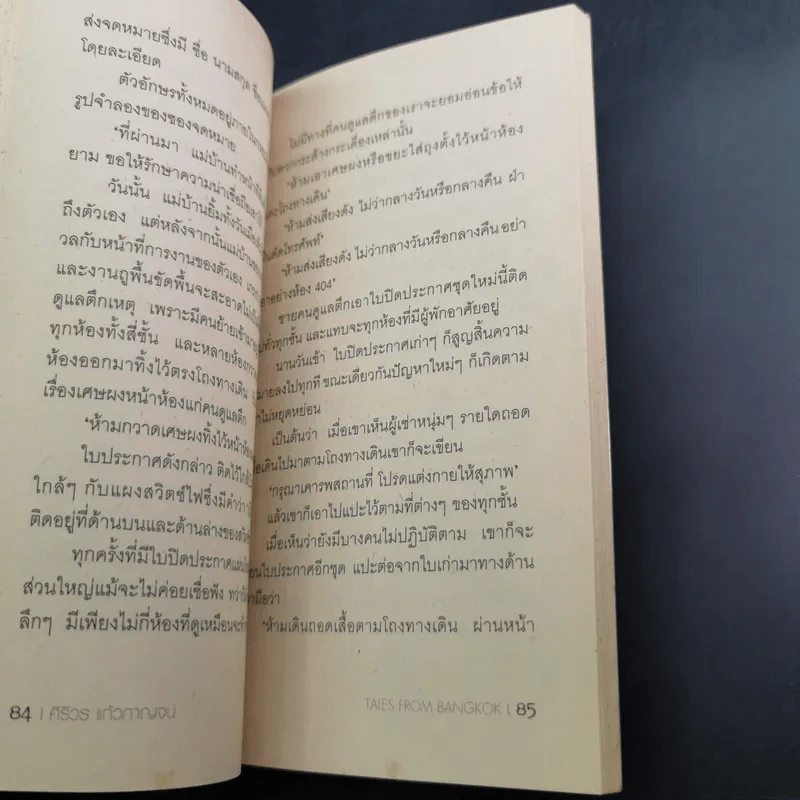 ส่งจดหมายซึ่งมี ชื่อ นามสกุล
โดยละเอียด
ตัวอักษรทั้งหมดอยู่ภายใน
รูปจำลองของซองจดหมาย
'ที่ผ่านมา แม่บ้านทำหน้าที่
ยาม ขอให้รักษาความน่าเชื่อถือ
วันนั้น แม่บ้านยิ้มทั้งวัน
ถึงตัวเอง แต่หลังจากนั้นแม่บ้าน
วลกับหน้าที่การงานของตัวเอง
และงานถูพื้นขัดพื้นจะสะอาดไม่
ดูแลตึกเหตุ เพราะมีคนย้ายเข้ามา
ทุกห้องทั้งสี่ชั้น และหลายห้อง
ห้องออกมาทิ้งไว้ตรงโถงทางเดิน
เรื่องเศษผงหน้าห้องแก่คนดูแลตึก
'ห้ามกวาดเศษผงทิ้งไว้หน้าห้อง
ใบประกาศดังกล่าว ติดไว้
ใกล้ๆ กับแผงสวิตช์ไฟซึ่งมีคำว่า
ติดอยู่ที่ด้านบนและด้านล่างของ
ทุกครั้งที่มีใบปิดประกาศ
ส่วนใหญ่แม้จะไม่ค่อยเชื่อฟัง
ลึกๆ มีเพียงไม่กี่ห้องที่ดูเหมือนจะ
84 | ศิริวร แก้วกาญจน์
ไม่มีทางที่คนดูแลตึกของเราจะยอมอ่อนข้อให้
กระด้างกระเดื่องเหล่านั้น
'ห้ามเอาเศษผงหรือขยะใส่ถุงตั้งไว้หน้าห้อง
และโถงทางเดิน'
'ห้ามส่งเสียงดัง ไม่ว่ากลางวันหรือกลางคืน ฝ่า
ตัดโทรศัพท์'
'ห้ามส่งเสียงดัง ไม่ว่ากลางวันหรือกลางคืน อย่า
อย่างห้อง 404'
ชายคนดูแลตึกเอาใบปิดประกาศชุดใหม่นี้ติด
ทั่วทุกชั้น และแทบจะทุกห้องที่มีผู้พักอาศัยอยู่
นานวันเข้า ใบปิดประกาศเก่าๆ ก็สูญสิ้นความ
หมายลงไปทุกที ขณะเดียวกันปัญหาใหม่ๆ ก็เกิดตาม
ไม่หยุดหย่อน
เป็นต้นว่า เมื่อเขาเห็นผู้เช่าหนุ่มๆ รายใดถอด
เสื้อเดินไปมาตามโถงทางเดินเขาก็จะเขียน
'กรุณาเคารพสถานที่ โปรดแต่งกายให้สุภาพ'
แล้วเขาก็เอาไปแปะไว้ตามที่ต่างๆ ของทุกชั้น
เมื่อเห็นว่ายังมีบางคนไม่ปฏิบัติตาม เขาก็จะ
ใบประกาศอีกชุด แปะต่อจากใบเก่ามาทางด้าน
มือว่า
'ห้ามเดินถอดเสื้อตามโถงทางเดิน ผ่านหน้า
TALES FROM BANGKOK | 85